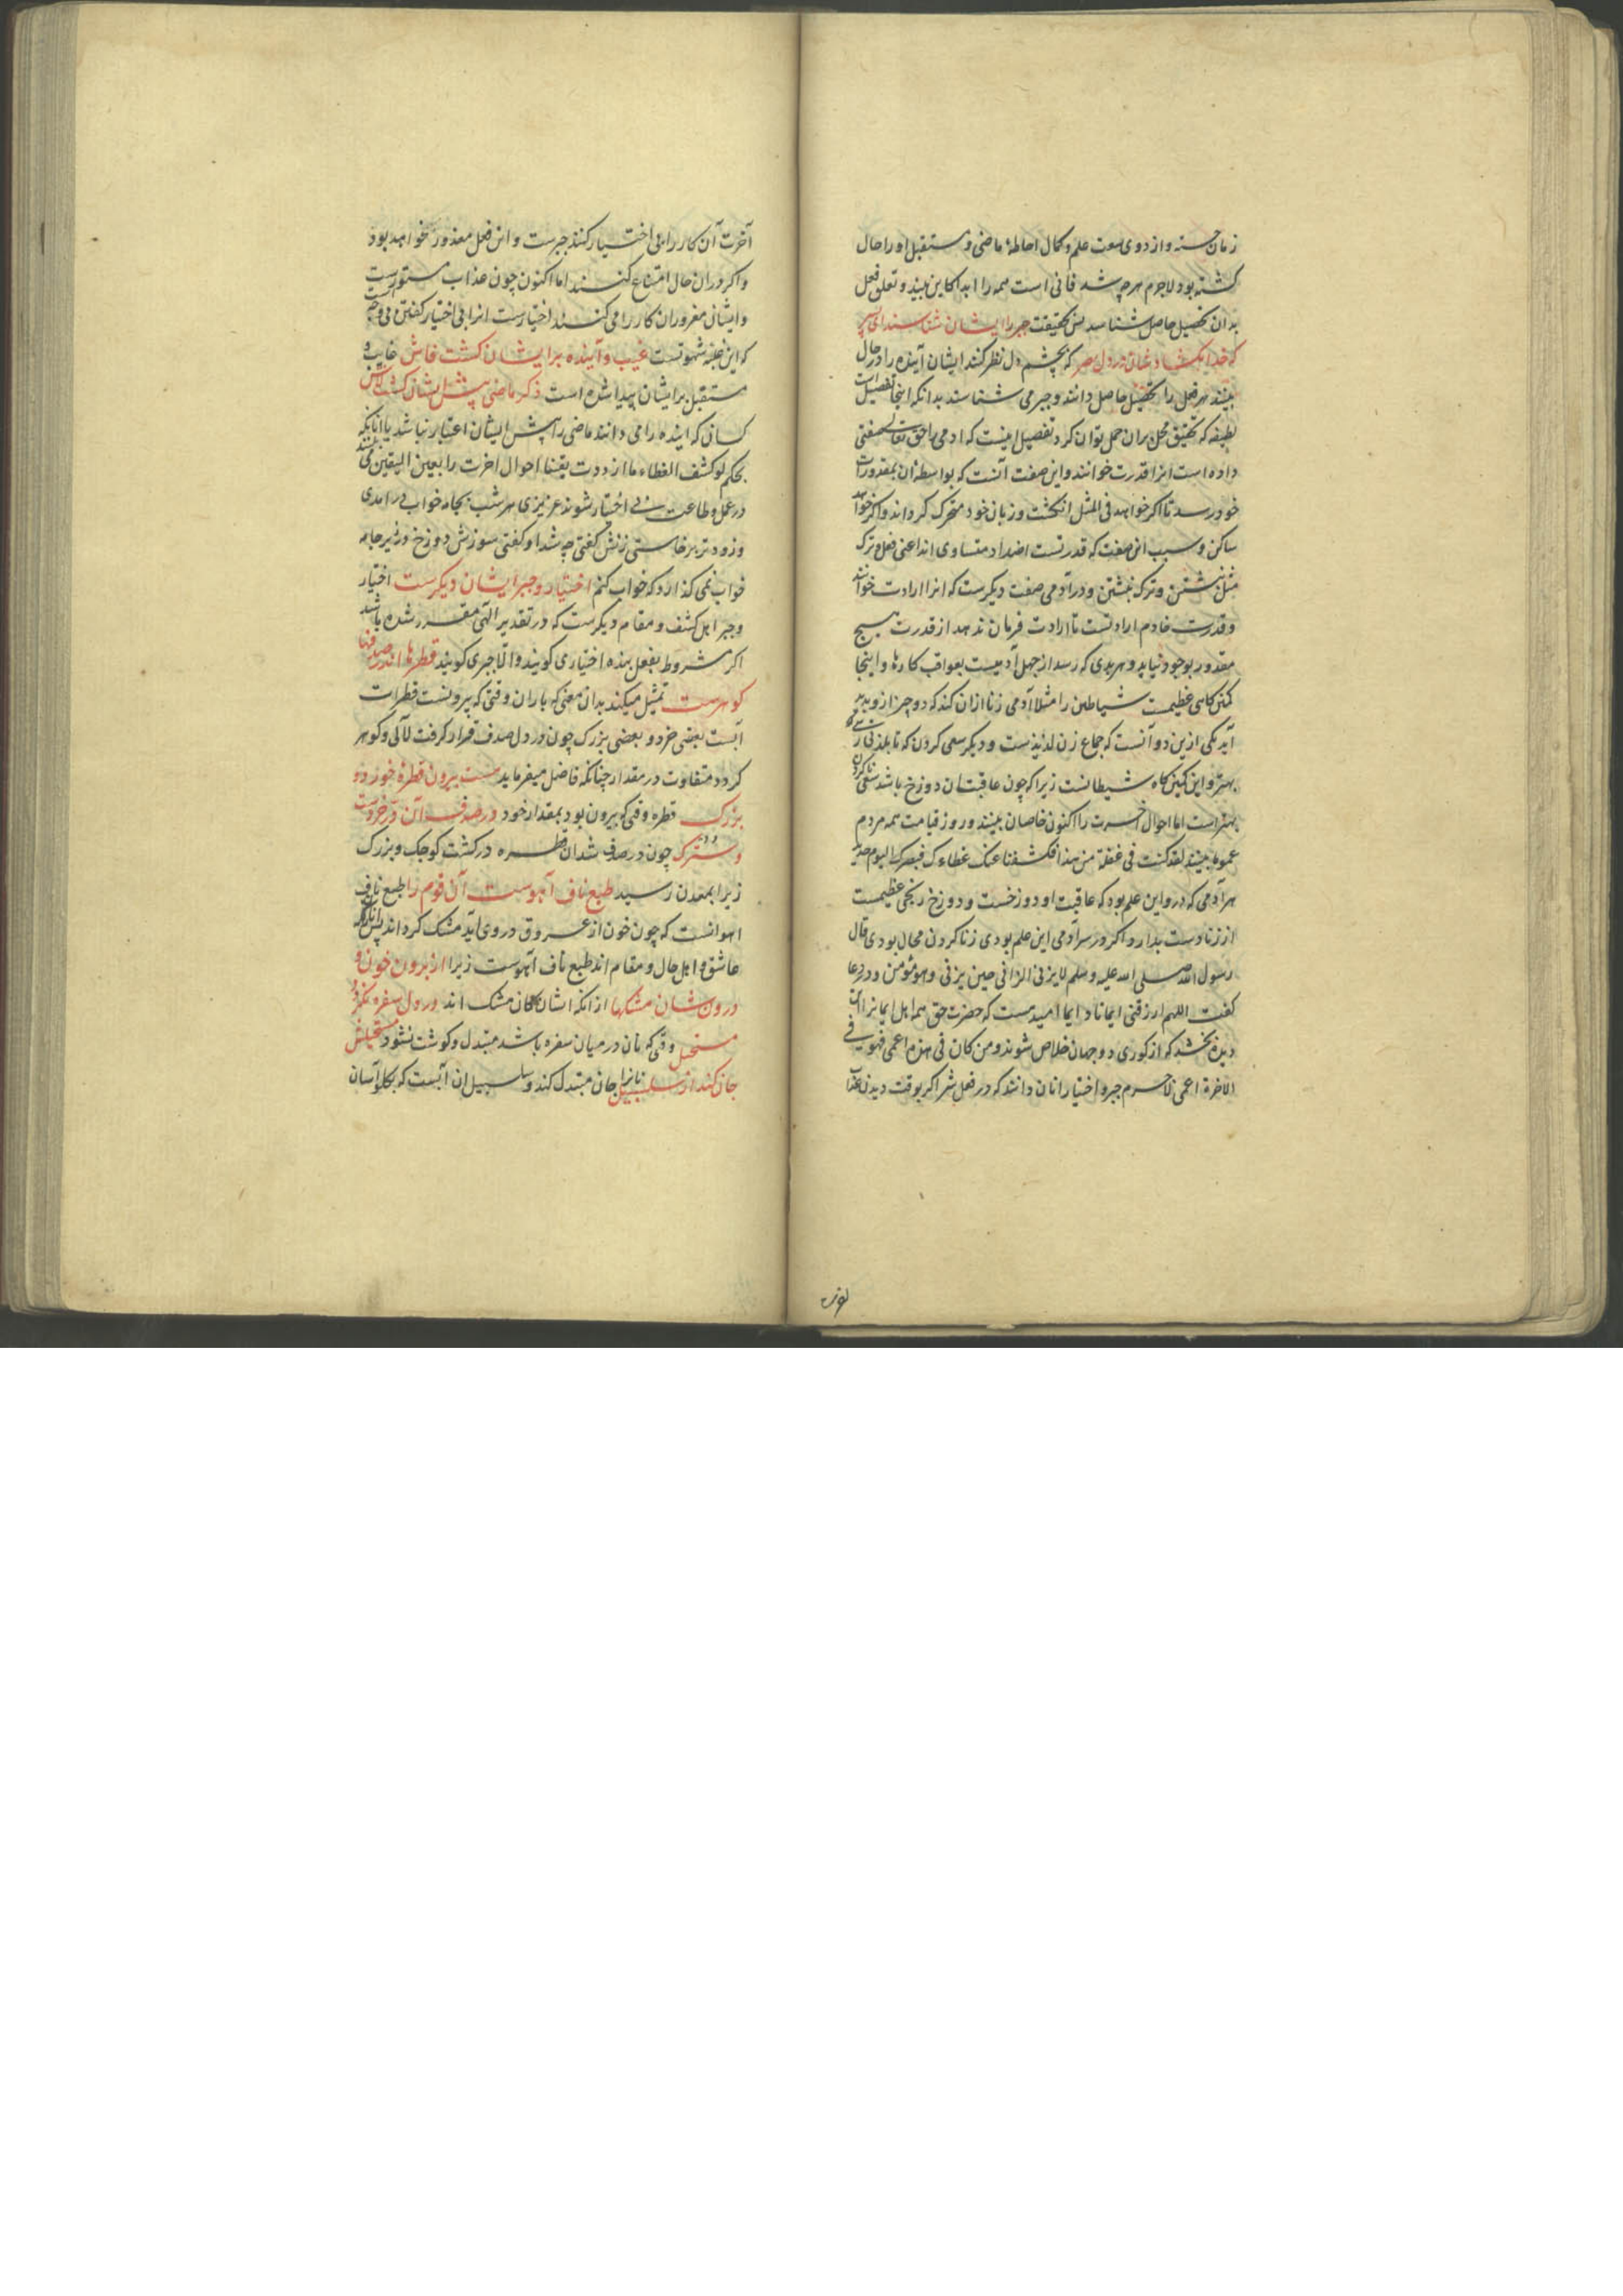 زمان جسته و از دوی سعت علم و کمال احاطهٔ ماضی و مستقبل او را حال
کشته بود لاجرم هرچه شد فانی است همه را ابدا کاین بیند و تعلق فعل
بدان تحصیل حاصل شناسد پس بحقیقت جبر را ایشان شناسند ای پسر
که خدا بکشادشان در دل بصر که بچشم دل نظر کنند ایشان آینده را در حال
بینند هر فعل را تحصیل حاصل دانند و جبر می شناسند بدانکه اینجا تفصیل است
لطیفه که تحقیق مجمل بران حمل توان کرد تفصیل اینست که ادمی را حق تعالی صفتی
داده است انرا قدرت خوانند و این صفت آنست که بواسطه ان بمقدورات
خود رسد تا اکر خواهد فی المثل انکشت و زبان خود متحرک کرداند و اکر خواهد
ساکن و سبب این صفت که قدرتست اضداد متساوی اند اعنی فعل و ترک
مثل نشستن و ترک نشستن و در آدمی صفت دیکرست که انرا ارادت خوانند
و قدرت خادم ارادتست تا ارادت فرمان ندهد از قدرت هیچ
مقدور بوجود نیاید و هر بدی که رسد از جهل آدمیست بعواقب کارها و اینجا
کمین کاهی عظیمست شیاطین را مثلا آدمی زنا ازان کند که دو چیز ازو پدید
آید یکی ازین دو آنست که جماع زن لذیذست و دیکر سعی کردن که تا بلذتی رسی
بهتر و این کمین کاه شیطانست زیرا که چون عاقبت ان دوزخ باشد سعی ناکردن
بهترست اما احوال اخرت را اکنون خاصان بینند و روز قیامت همه مردم
عموما بینند لقد کنت فی غفلة من هذا فکشفنا عنک غطاءک فبصرک الیوم حدید
هر آدمی که درو این علم بود که عاقبت او دوزخست و دوزخ رنجی عظیمست
از زنا دست بدارد و اکر در سر آدمی این علم بودی زنا کردن محال بودی قال
رسول الله صلی الله علیه وسلم لایزنی الزانی حین یزنی وهو مؤمن و در دعا
کفت اللهم ارزقنی ایمانا دایما امید هست که حضرت حق همه اهل ایمانرا آن
دیده بخشد که از کوری دو جهان خلاص شوند و من کان فی هذه اعمی فهو فی
الاخرة اعمی لاجرم جبر و اختیار انان دانند که در فعل شر اکر بوقت دیدن عذاب
آخرت آن کار را بی اختیار کنند جبرست و این فعل معذور خواهد بود
و اکر در ان حال امتناع کنند اما اکنون چون عذاب مستورست
و ایشان مغرور ان کار را می کنند اختیارست انرا بی اختیار کفتن بی وجه است
که این غلبه شهوتست غیب و آینده برایشان کشت فاش غایب و
مستقبل برایشان پیدا شده است ذکر ماضی پیش ایشان کشت لاش
کسانی که اینده را می دانند ماضی را پیش ایشان اعتبار نباشد یا انانکه
بحکم لو کشف الغطاء ما ازددت یقینا احوال اخرت را بعین الیقین می بینند
در عمل و طاعت بی اختیار شوند عزیزی هر شب بجامه خواب در امدی
و زودتر برخاستی زنش کفتی چه شد او کفتی سوزش دوزخ در زیر جامه
خواب نمی کذارد که خواب کنم اختیار و جبر ایشان دیکرست اختیار
و جبر اهل کشف و مقام دیکرست که در تقدیر الهی مقدر شده باشد
اکر مشروط بفعل بنده اختیاری کویند و الا جبری کویند قطرها اندر صدفها
کوهرست تمثیل میکند بدان معنی که باران وقتی که بیرونست قطرات
آبست بعضی خرد و بعضی بزرک چون در دل صدف قرار کرفت لآلی و کوهر
کردد متفاوت در مقدار چنانکه فاضل میفرماید هست بیرون قطرهٔ خورد و
بزرک قطره وقتی که بیرون بود بمقدار خود در صدف آن در خردست
و سترک چون در صدف شد ان قطره در کشت کوچک و بزرک
زیرا بمعدن رسید طبع ناف آهوست آن قوم را طبع ناف
اهو انست که چون خون از عروق در وی اید مشک کرداند پس انانکه
عاشق و اهل حال و مقام اند طبع ناف آهوست زیرا از برون خون و
درون شان مشکها از انکه اشان کان مشک اند در دل سفره نکردد
مستحیل وقتی که نان در میان سفره باشد مبتدل و کوشت نشود مستحیلش
جان کند از سلسبیل نانرا جان مبتدل کند و سلسبیل ان آبست که بکلو آسان